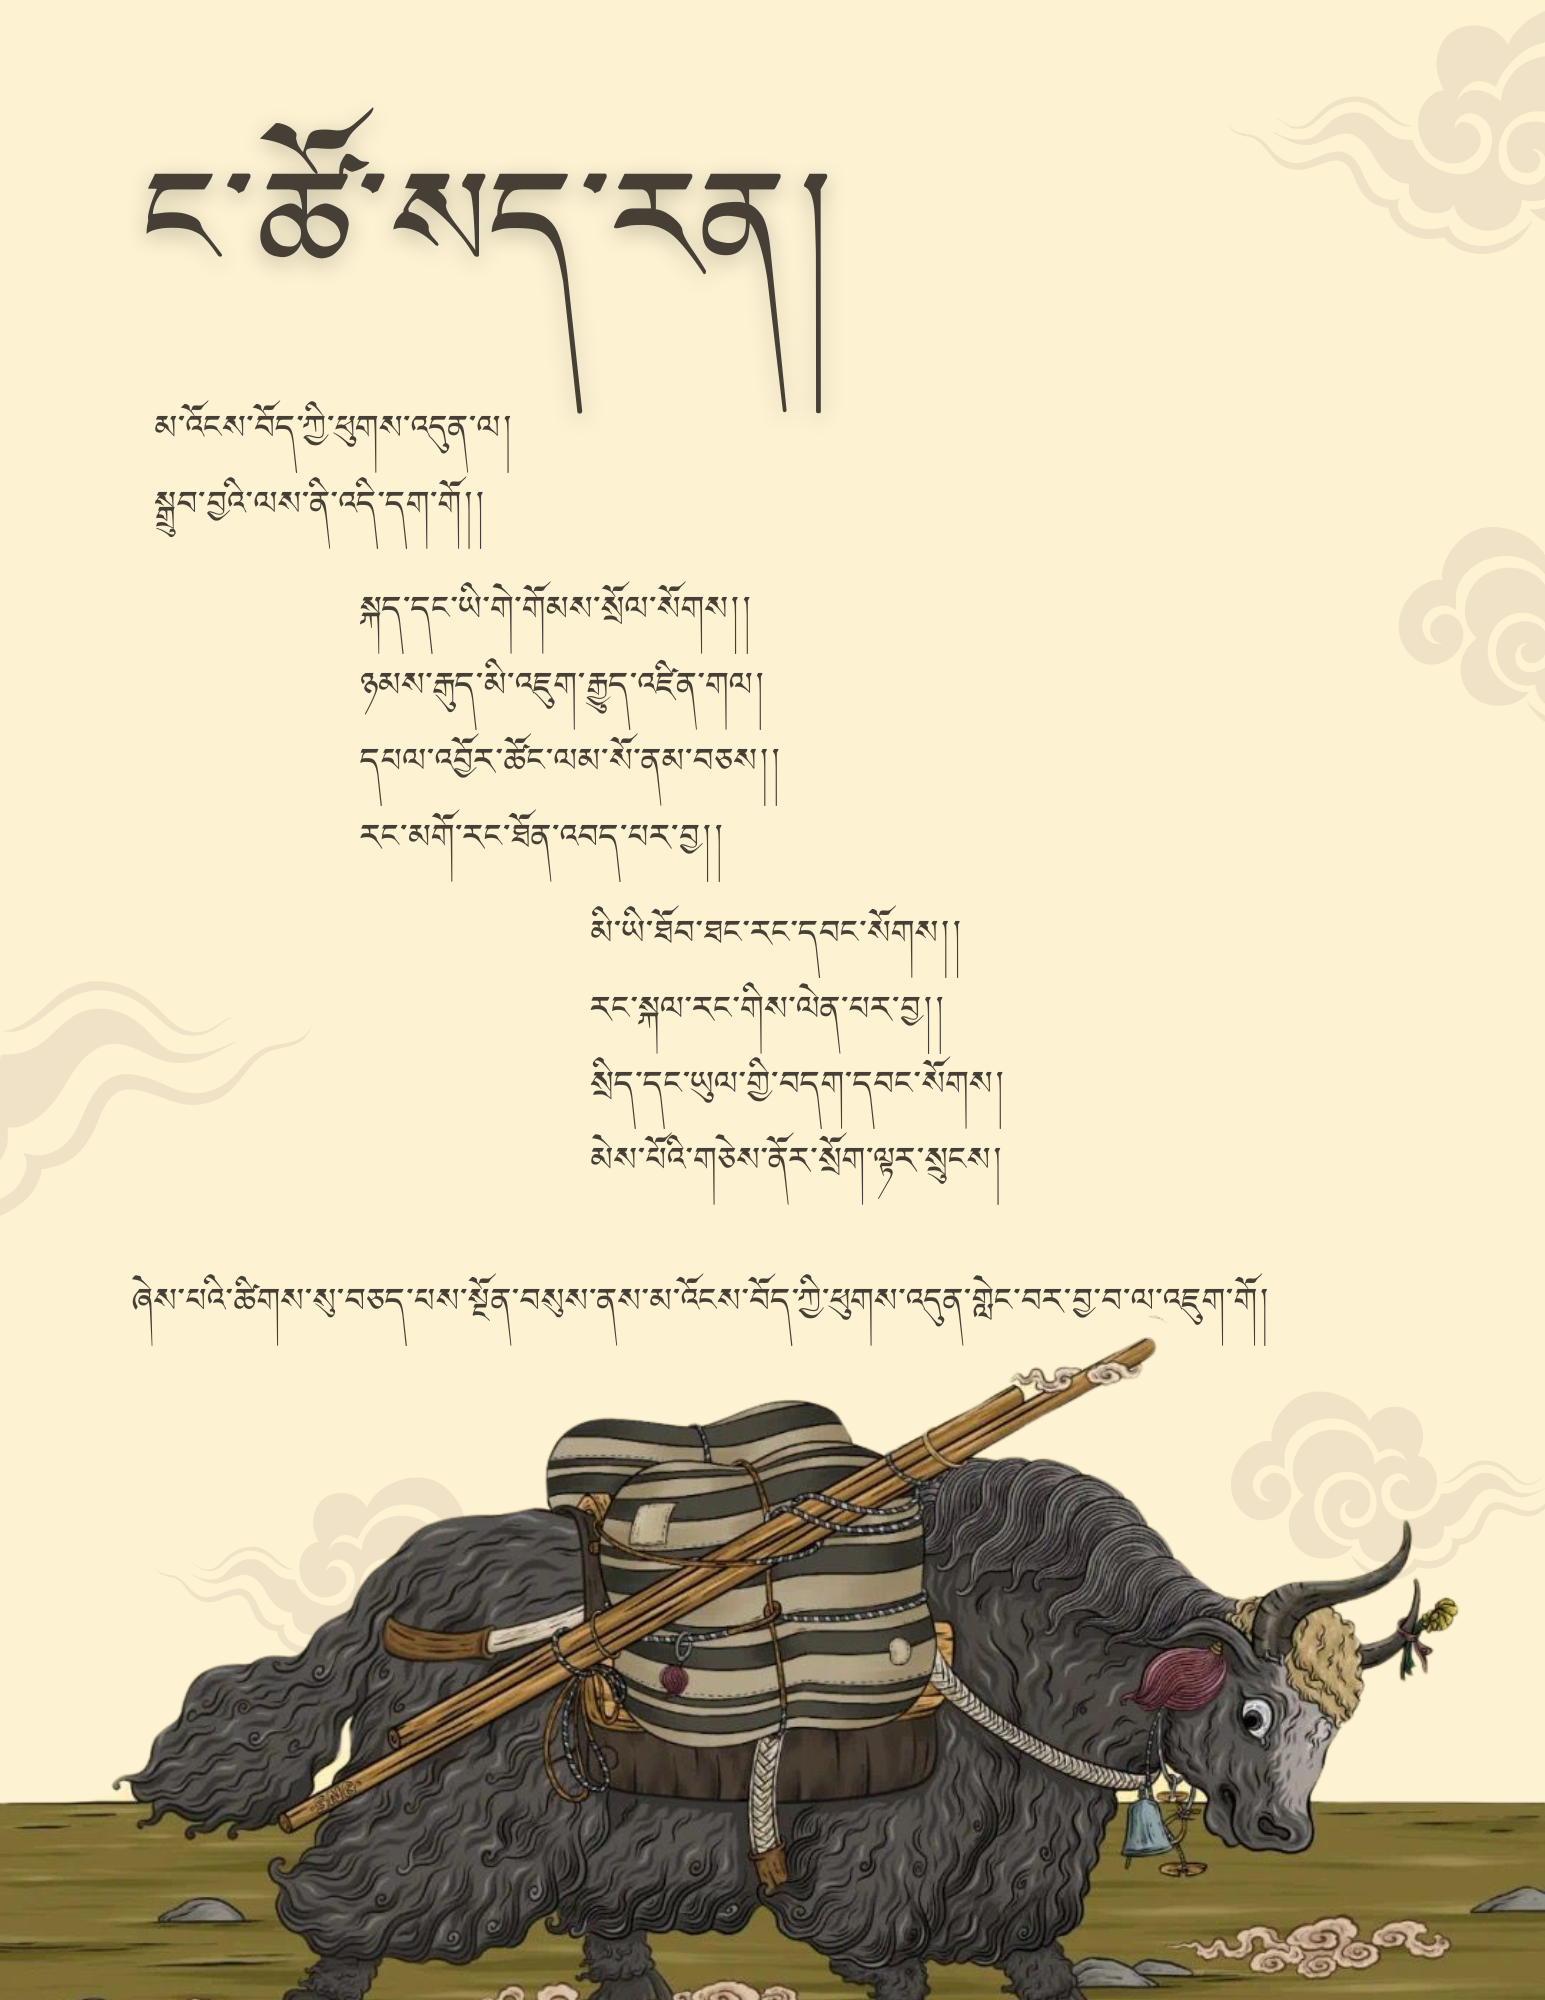 ང་ཚོ་སད་རན།
མ་འོངས་བོད་ཀྱི་ཕུགས་འདུན་ལ།
སྒྲུབ་བྱའི་ལས་ནི་འདི་དག་གོ།།།
སྐད་དང་ཡི་གེ་གོམས་སྲོལ་སོགས།།
ཉམས་རྒུད་མི་འཇུག་རྒྱུད་འཛིན་གལ།
དཔལ་འབྱོར་ཚོང་ལམ་སོ་ནམ་བཅས།།
རང་མགོ་རང་ཐོན་འབད་པར་བྱ།།
མི་ཡི་ཐོབ་ཐང་རང་དབང་སོགས།།
རང་སྐལ་རང་གིས་ལེན་པར་བྱ།།
སྲིད་དང་ཡུལ་གྱི་བདག་དབང་སོགས།
མེས་པོའི་གཅེས་ནོར་སྲོག་ལྟར་སྲུངས།
ཞེས་པའི་ཚིགས་སུ་བཅད་པས་སྔོན་བསུས་ནས་མ་འོངས་བོད་ཀྱི་ཕུགས་འདུན་གླེང་བར་བྱ་བ་ལ་འཇུག་གོ།